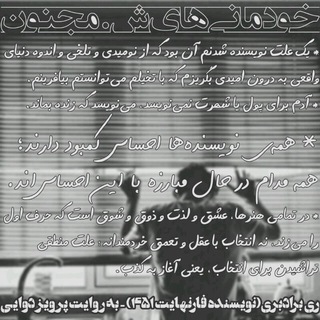 خودمانی‌های ش. مجنون
* یک علت نویسنده شدنم آن بود که از نومیدی و تلخی و اندوه دنیای
واقعی به درون امیدی بگریزم که با تخیلم می‌توانستم بیافرینم.
* آدم برای پول یا شهرت نمی‌نویسد. می‌نویسد که زنده بماند.
* همه‌ی نویسنده‌ها احساس کمبود دارند؛
همه مدام در حال مبارزه با این احساس‌اند.
* در تمامی هنرها، عشق و لذت و ذوق و شوق است که حرف اول
را می‌زند، نه انتخاب با عقل و تعمق خردمندانه: علت منطقی
تراشیدن برای انتخاب، یعنی آغاز به کذب.
ری برادبری (نویسنده فارنهایت ۴۵۱) - به روایت پرویز دوایی